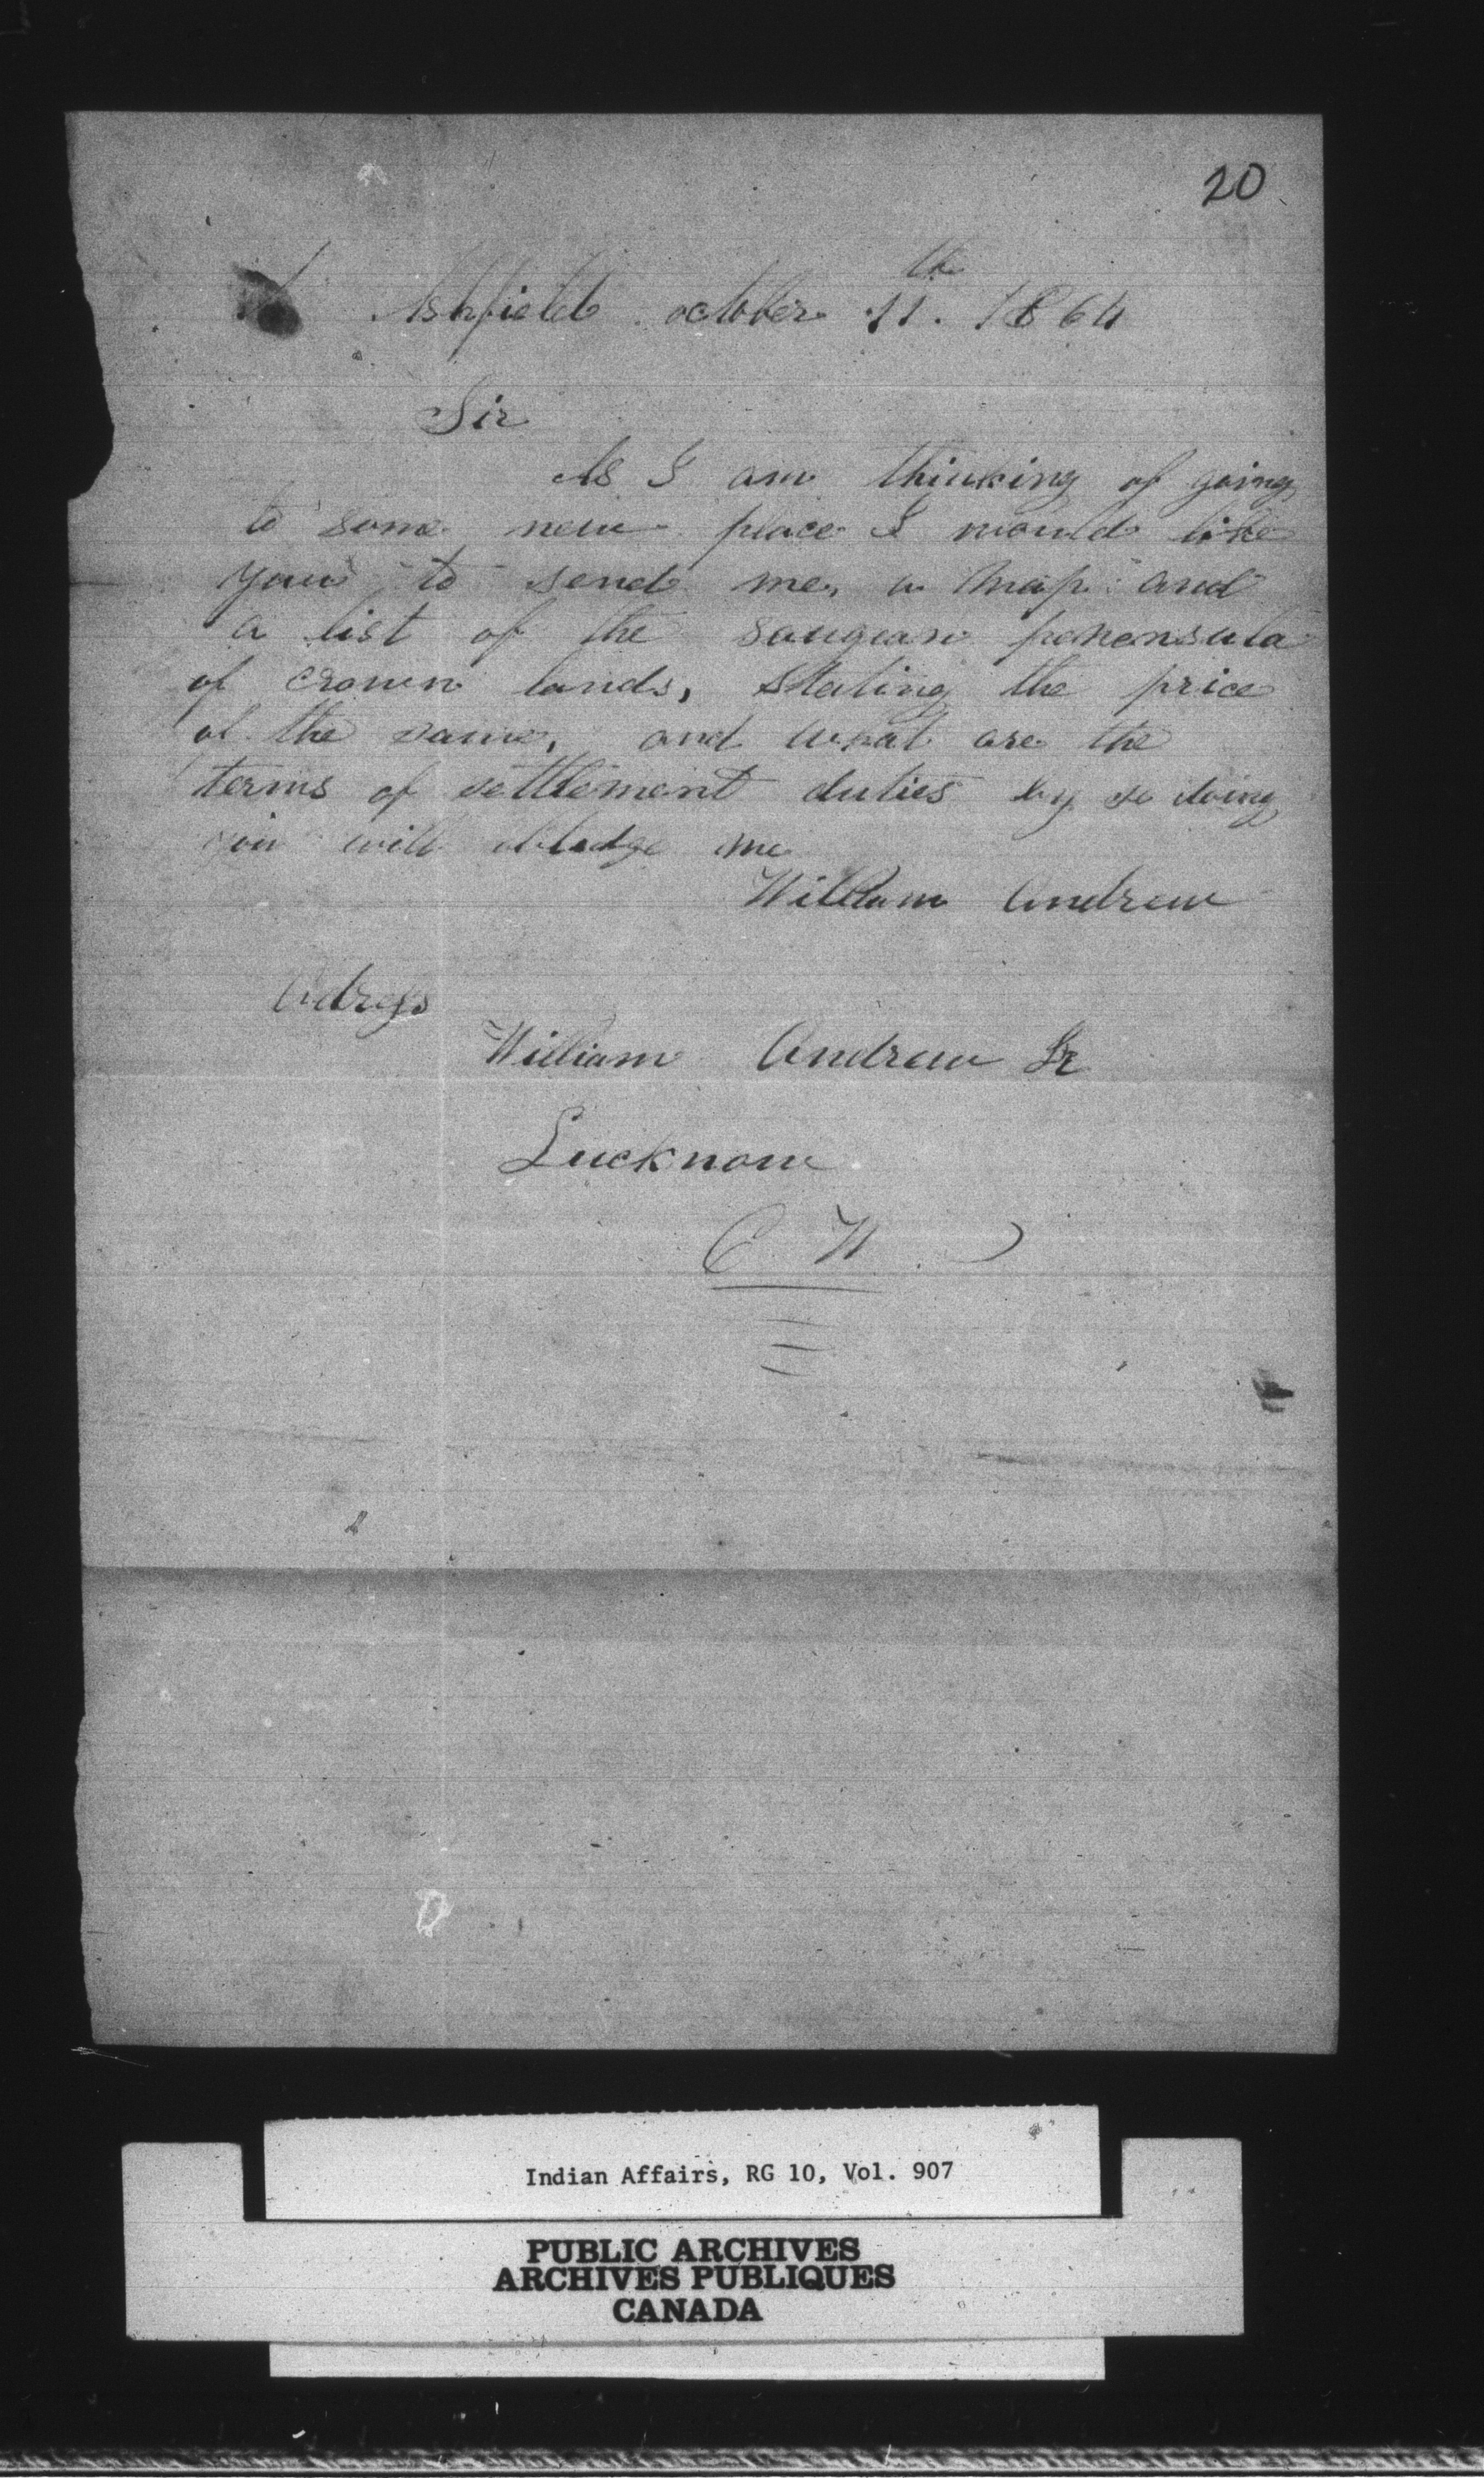 20
Ashfield october 11th. 1864
Sir
As I am thinking of going
to some new place I would like
you to send me, a map and
a list of the saugean penensula
of crown lands, stating the price
of the same, and what are the
terms of settlement duties by so doing
you will obledge me
William Andrew
Adress
William Andrew Jr
Lucknow
C W
Indian Affairs, RG 10, Vol. 907
PUBLIC ARCHIVES
ARCHIVES PUBLIQUES
CANADA